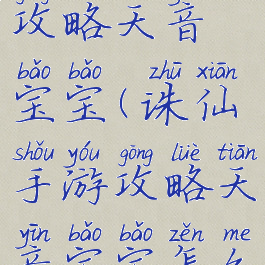 攻略天音
bǎo bǎo zhū xiān
宝宝(诛仙
shǒu yóu gōng lüè tiān
手游攻略天
yīn bǎo bǎo zěn me
音宝宝怎么